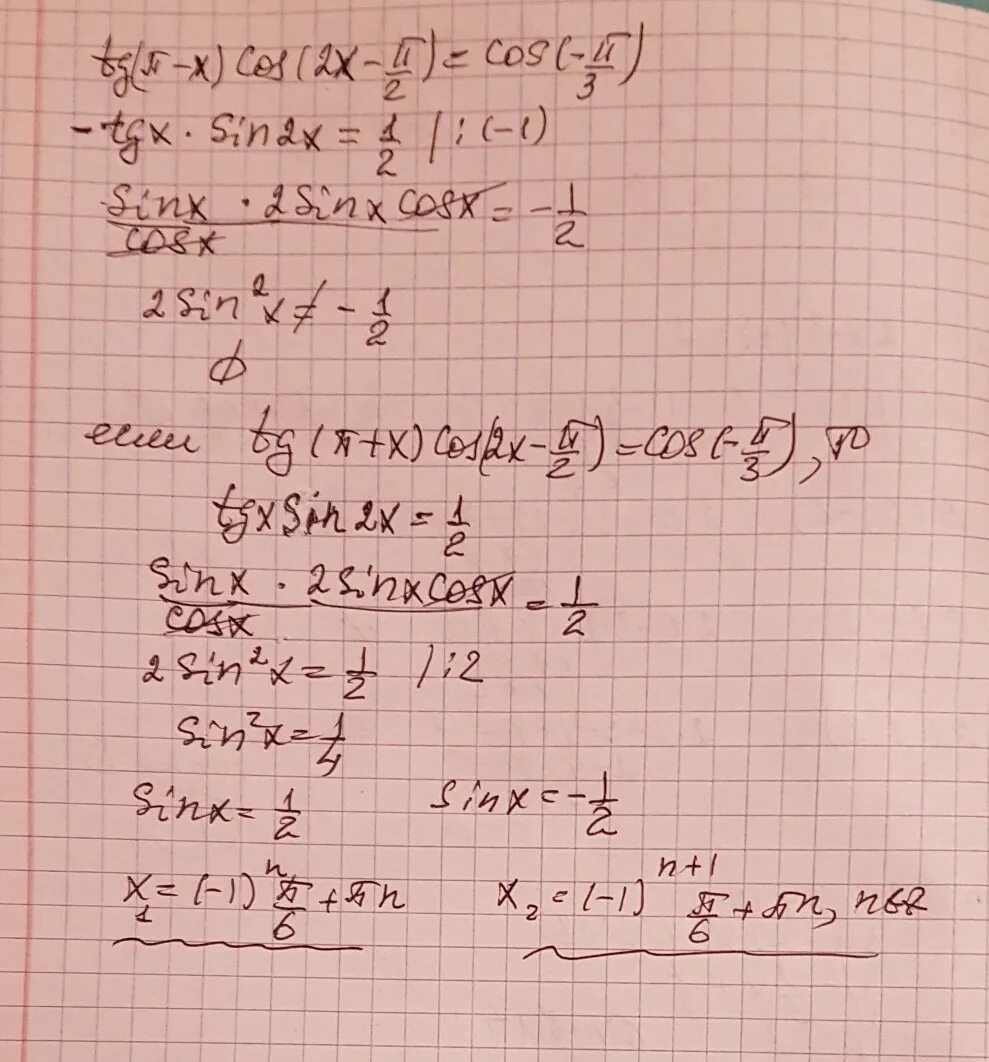 tg(π-x) cos(2x-π/2) = cos(-π/3)
-tgx · sin2x = 1/2 | : (-1)
sinx/cosx · 2sinx cosx = -1/2
2sin²x ≠ -1/2
∅
если tg(π+x) cos(2x-π/2) = cos(-π/3), то
tgx sin2x = 1/2
sinx/cosx · 2sinxcosx = 1/2
2sin²x = 1/2 | : 2
sin²x = 1/4
sinx = 1/2 sinx = -1/2
x₁ = (-1)ⁿ π/6 + πn x₂ = (-1)ⁿ⁺¹ π/6 + πn, n∈Z